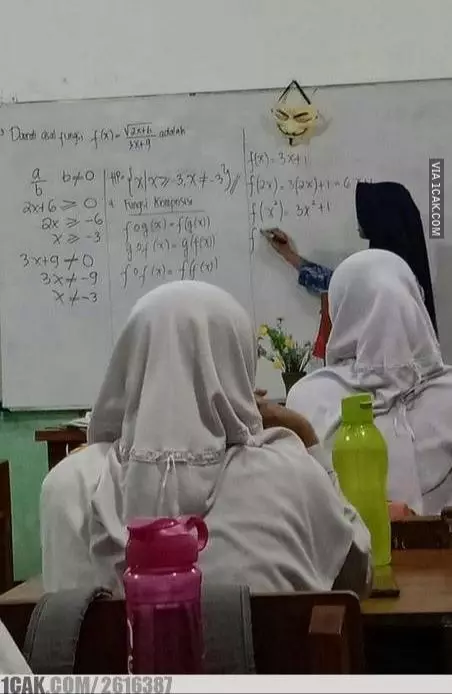 Daerah asal fungsi f(x) = √2x+6 / 3x+9 adalah
a/b b≠0
2x+6 ≥ 0
2x ≥ -6
x ≥ -3
3x+9 ≠ 0
3x ≠ -9
x ≠ -3
HP = {x | x ≥ -3, x ≠ -3}
Fungsi Komposisi
fog(x) = f(g(x))
gof(x) = g(f(x))
fof(x) = f(f(x))
f(x) = 3x+1
f(2x) = 3(2x)+1 = 6x+1
f(x²) = 3x²+1
f
VIA 1CAK.COM
1CAK.COM/2616387